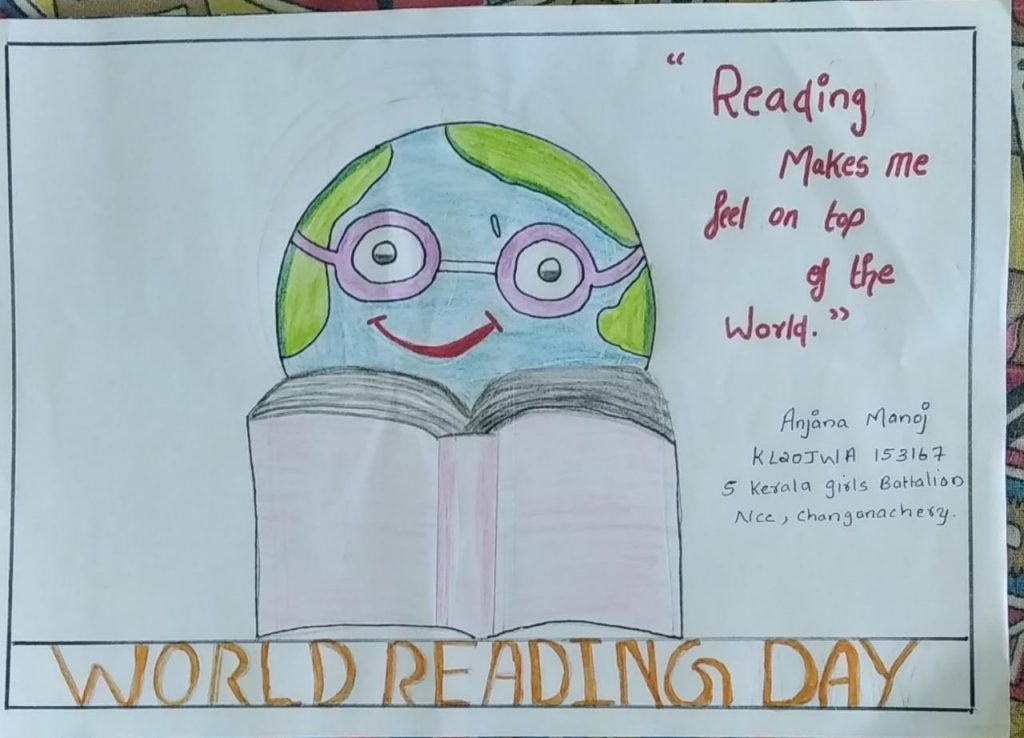 “ Reading
Makes me
feel on top
of the
World.”
Anjana Manoj
KL20JWA 153167
5 Kerala girls Battalion
Ncc, Changanachery.
WORLD READING DAY